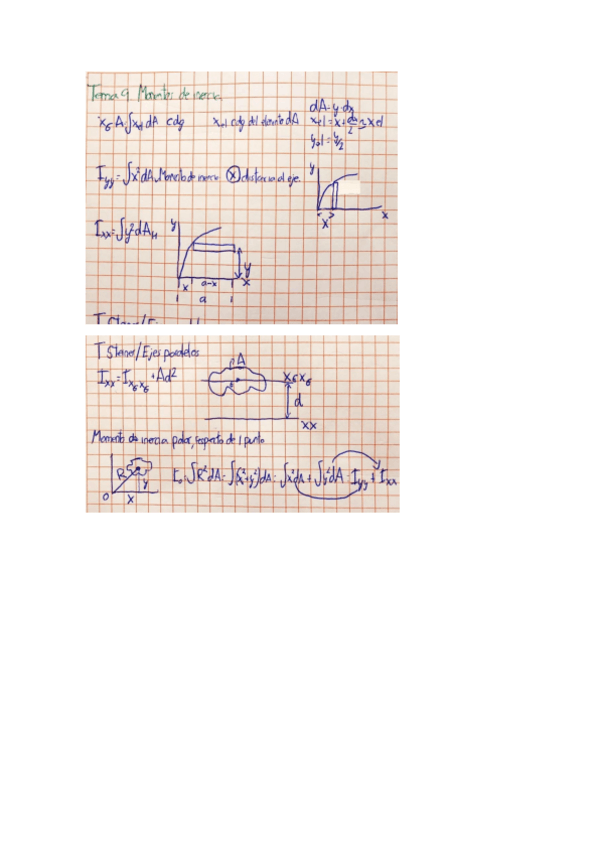 Tema 9 Momentos de inercia
x_G A=∫x_el dA cdg
x_el cdg del elemento dA
dA=y·dx
x_el=x+dx/2≈x el
y_el=y/2
I_yy=∫x²dA Momento de inercia ⓧ distancia al eje.
y
x
x
I_xx=∫y²dA_H
y
y
x
a-x
x
a
T Steiner/Ejes paralelos
I_xx=I_xGxG+Ad²
A
x_G x_G
d
xx
Momento de inercia polar, respecto de 1 punto
R
y
O
x
I_o=∫R²dA=∫(x²+y²)dA=∫x²dA+∫y²dA=I_yy+I_xx